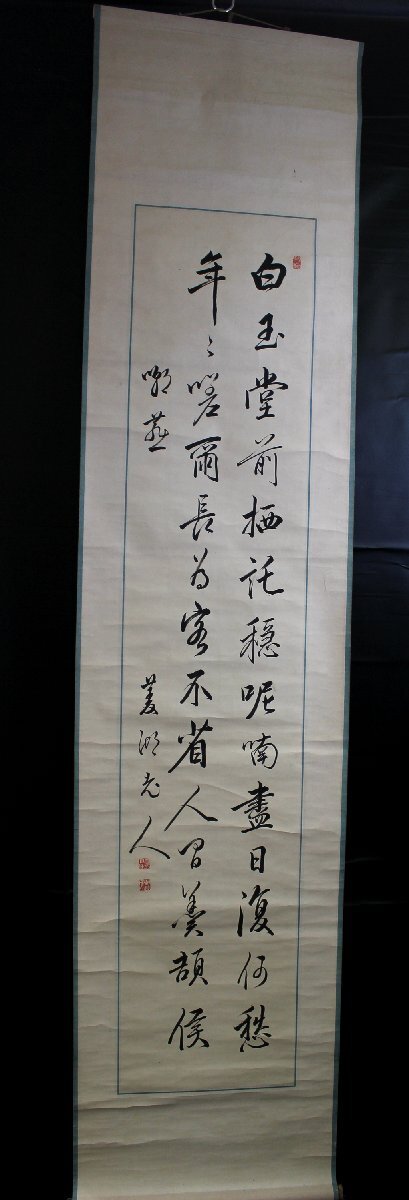 白玉堂前栖託穩呢喃盡日復何愁
年々嗟爾長為客不省人間羹頡侯
嘲燕
菱湖老人